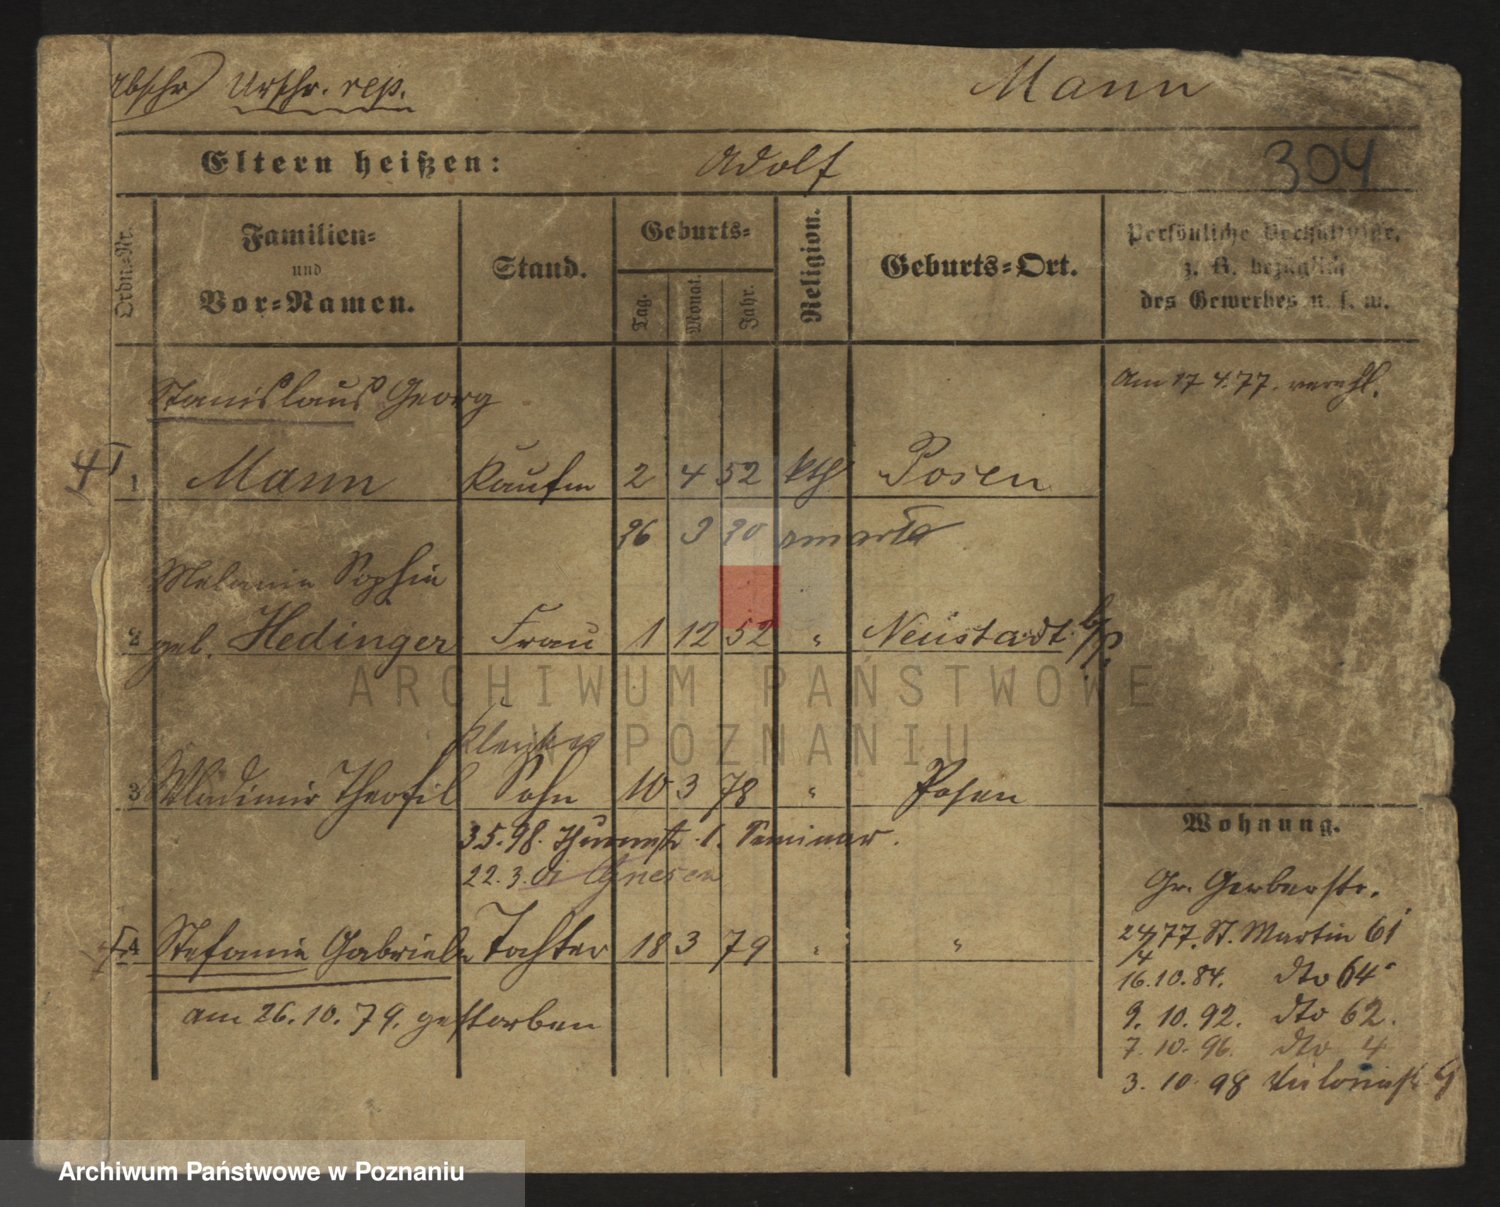 Urschr. rep.
Mann
Eltern heißen:
Adolf
304
Ordn.-Nr.
Familien-
und
Vor-Namen.
Stand.
Geburts-
Tag.
Monat.
Jahr.
Religion.
Geburts-Ort.
Persönliche Verhältnisse,
z. B. bezüglich
des Gewerbes u. s. w.
Stanislaus Georg
Am 17 4.77. verehl.
1 Mann Kaufm 2 4 52 kth Posen
26 9 90 zmarła
Melanie Sophie
2 geb. Hedinger Frau 1 12 52 " Neustadt b/P.
ARCHIWUM PAŃSTWOWE
W POZNANIU
3 Wladimir Theofil Sohn 10 3 78 " Posen
3.5.98. 1. Seminar.
22.3. Gnesen
4 Stefanie Gabriele Tochter 18 3 79 " "
am 26.10.79. gestorben
Wohnung.
Gr. Gerberstr.
24/4 77. St. Martin 61
16.10.84. dto 64
9.10.92. dto 62.
7.10.96. dto 4
3.10.98
Archiwum Państwowe w Poznaniu